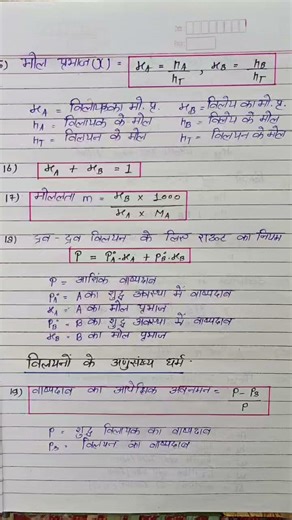 5) मोल प्रभाज(X) = xA = nA/nT , xB = nB/nT
xA = विलायक का मो. प्र. xB = विलेय का मो. प्र.
nA = विलायक के मोल nB = विलेय के मोल
nT = विलयन के मोल nT = विलयन के मोल
16) xA + xB = 1
17) मोललता m = xB × 1000 / xA × MA
18) द्रव - द्रव विलयन के लिए राउल्ट का नियम
P = P°A·xA + P°B·xB
P = आंशिक वाष्पदाब
P°A = A का शुद्ध अवस्था में वाष्पदाब
xA = A का मोल प्रभाज
P°B = B का शुद्ध अवस्था में वाष्पदाब
xB = B का मोल प्रभाज
विलयनों के अणुसंख्य धर्म
19) वाष्पदाब का आपेक्षिक अवनमन = P - Ps / P
P = शुद्ध विलायक का वाष्पदाब
Ps = विलयन का वाष्पदाब